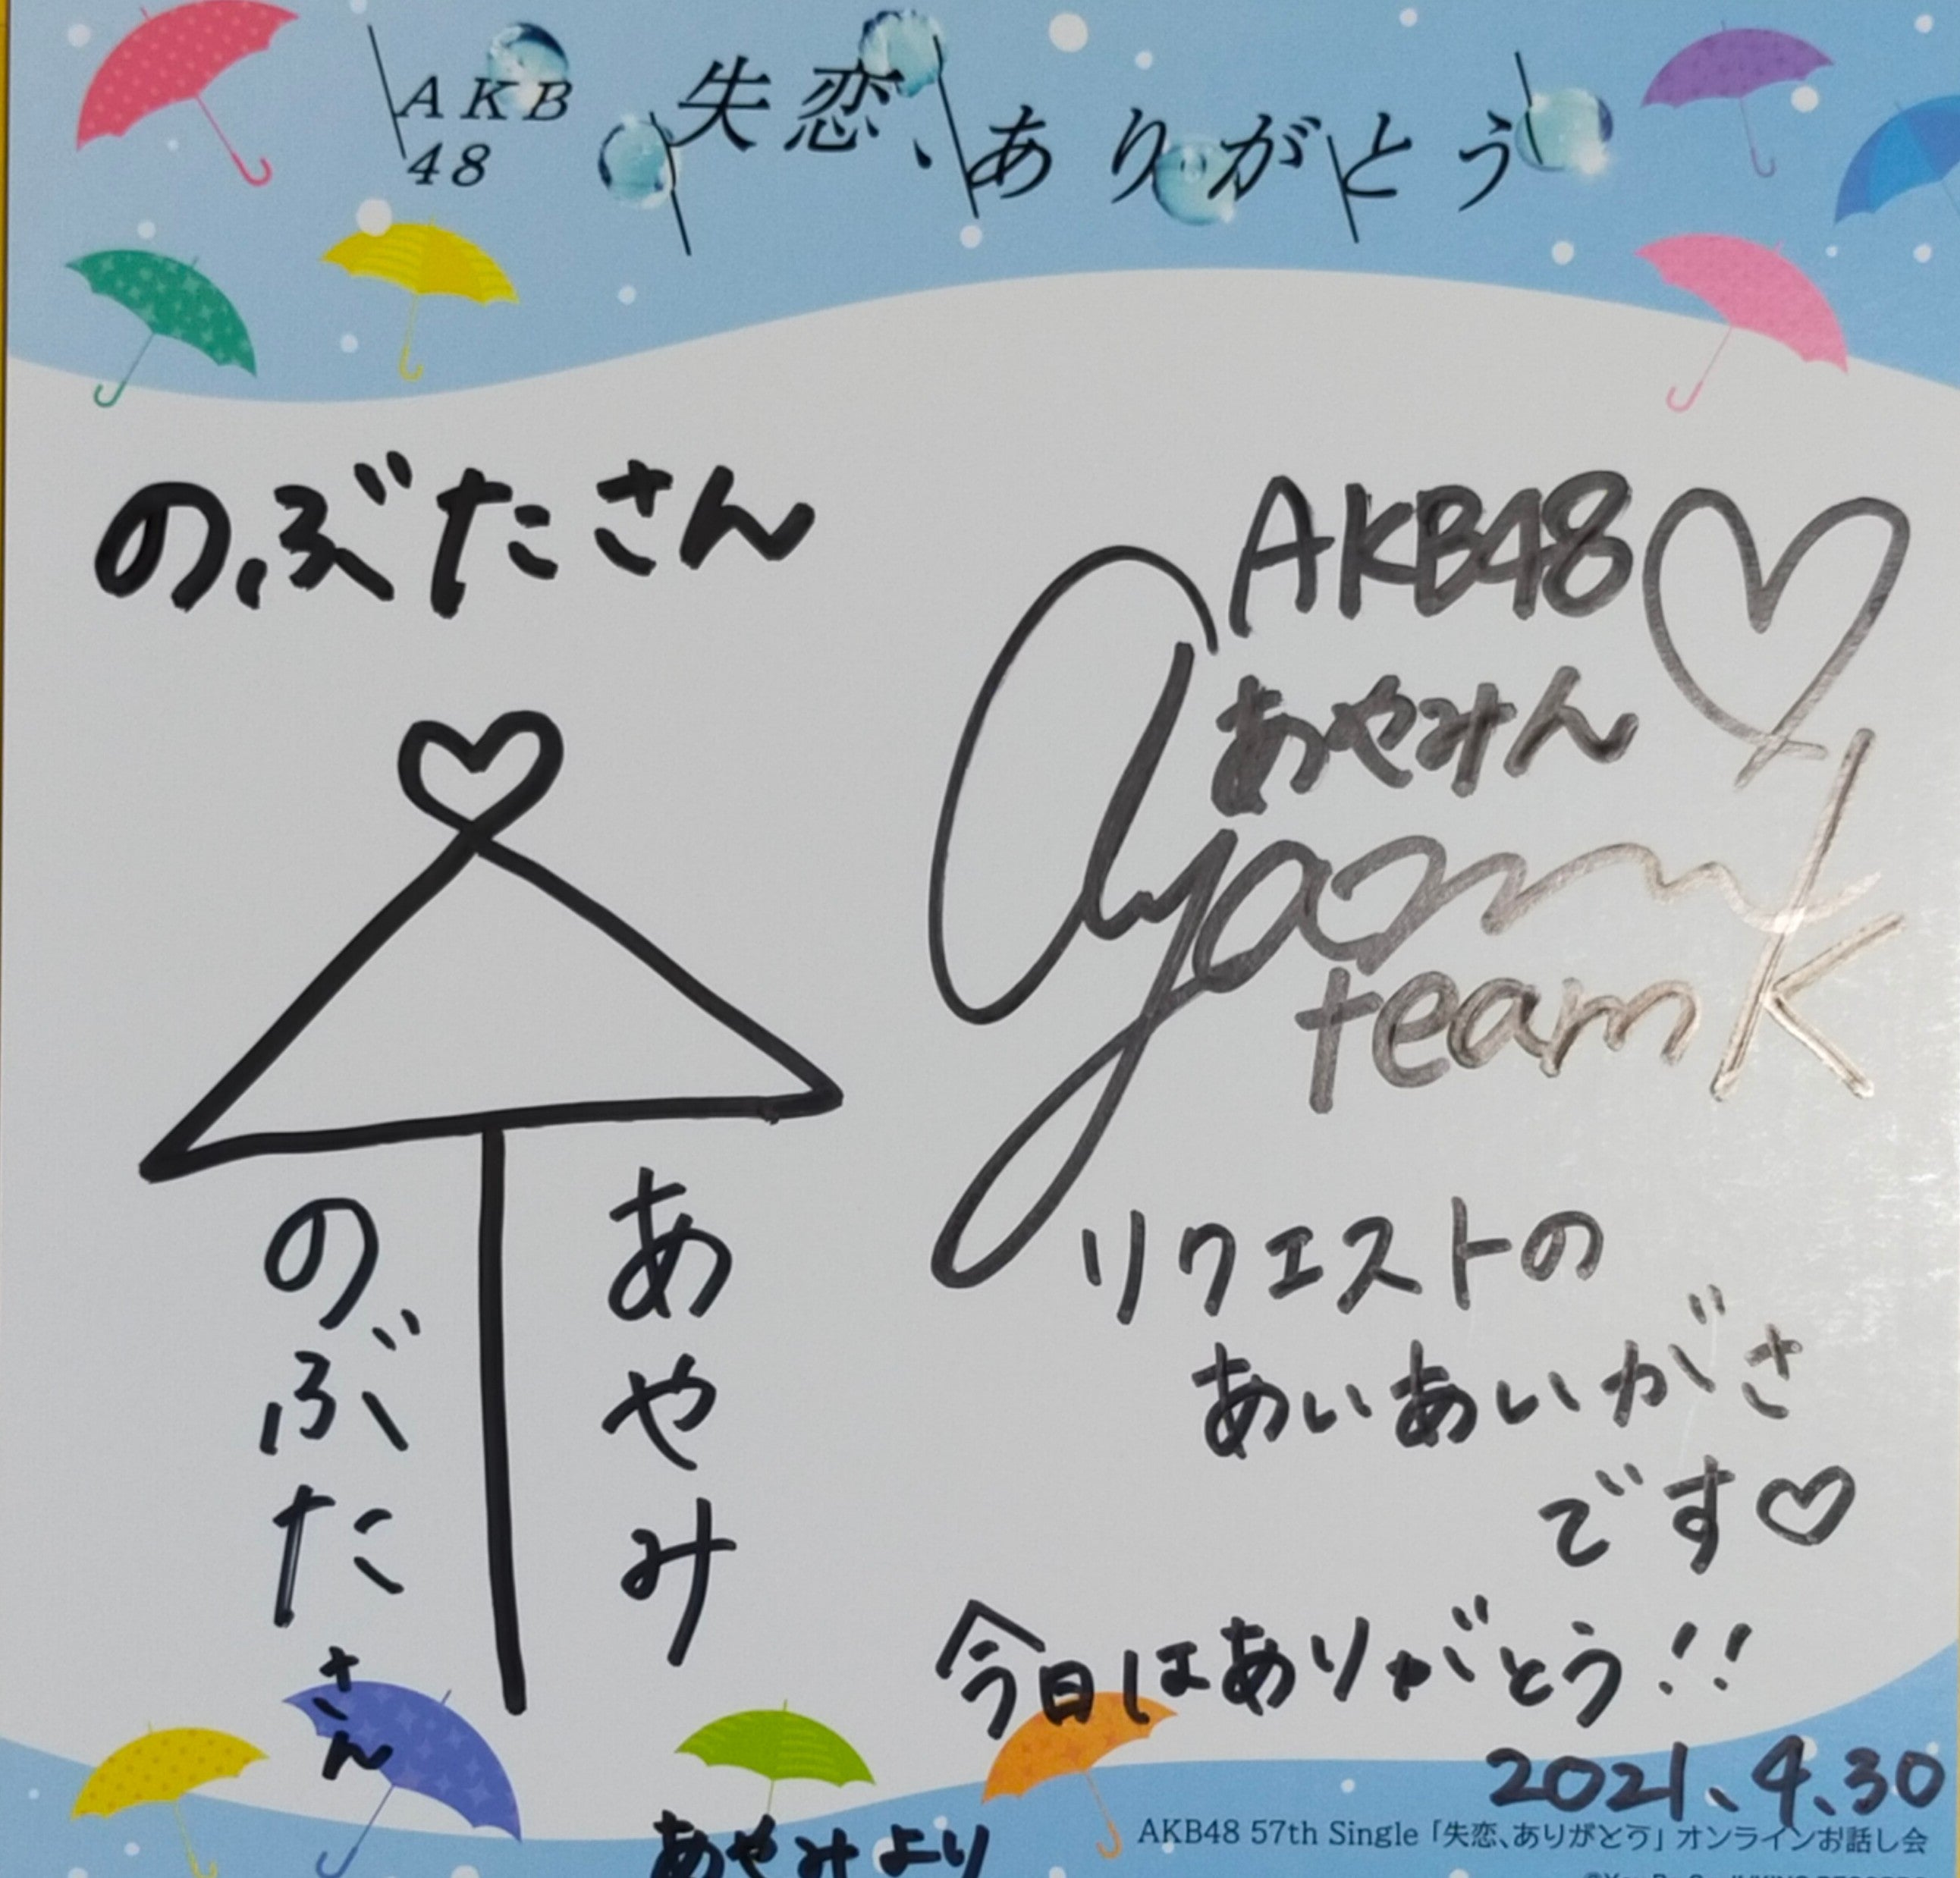 AKB
48
失恋、ありがとう
のぶたさん
AKB48♡
あやみん
ayami
team K
あやみ
のぶたさん
リクエストの
あいあいがさ
です♡
今日はありがとう!!
2021.4.30
あやみより
AKB48 57th Single「失恋、ありがとう」オンラインお話し会